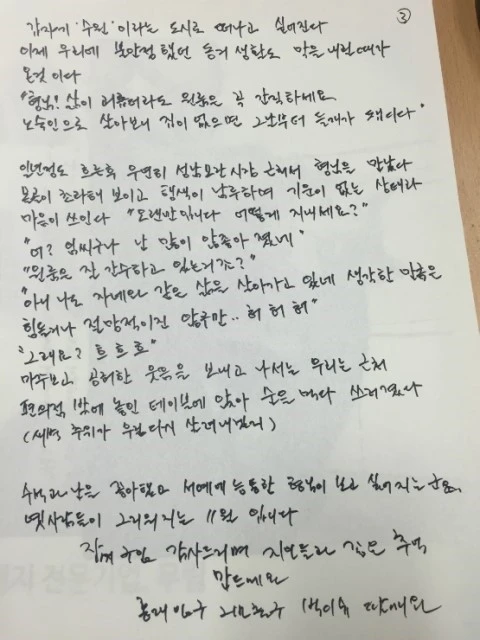 ③
갑자기 '수원' 이라는 도시로 떠나고 싶어진다
이제 우리에 불안정 했던 동거 생활도 막을 내릴 때가
온것 이다
"형님! 삶이 괴롭더라도 원룸은 꼭 간직하세요
노숙인으로 살아보니 집이 없으면 그날부터 들개가 됩디다"
일년정도 흐른후 우연히 성남모란시장 근처서 형님을 만났다
몰골이 초라해 보이고 행색이 남루하며 기운이 없는 상태라
마음이 쓰인다 "오랜만입니다 어떻게 지내세요?"
"어? 엄씨구나 난 많이 안좋아 졌네"
"원룸은 잘 간수하고 있는거죠?"
"아니 나도 자네와 같은 삶을 살아가고 있네 생각한 만큼은
힘들거나 절망적이진 않구만.. 허 허 허"
"그래요? 흐흐흐"
마주보고 공허한 웃음을 보내고 나서는 우리는 근처
편의점 밖에 놓인 테이블에 앉아 술을 먹다 쓰러졌다
(새벽 추위가 우릴 다시 살려내겠지)
수석과 난을 좋아했고 서예에 능통한 형님이 보고 싶어지는군요
옛사람들이 그리워지는 11월 입니다
구입 감사드리며 지인들과 깊은 추억
만드세요